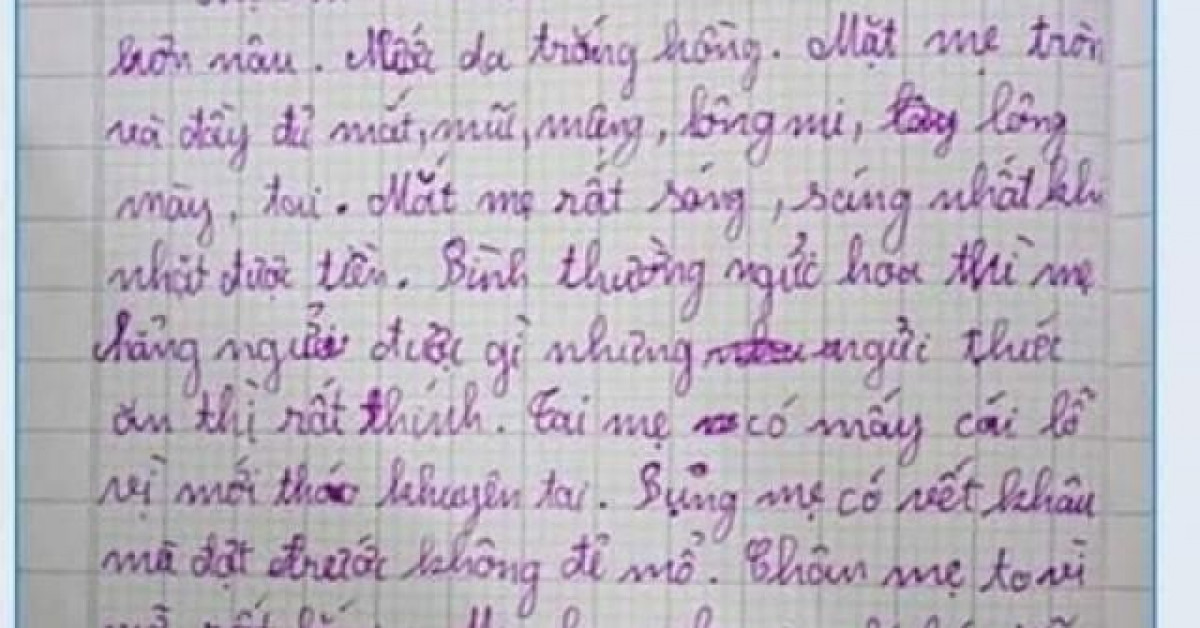 hơn nâu. Màu da trắng hồng. Mặt mẹ tròn
và đầy đủ mắt, mũi, miệng, lông mi, lông
mày, tai. Mắt mẹ rất sáng, sáng nhất khi
nhặt được tiền. Bình thường ngửi hoa thì mẹ
chẳng ngửi được gì nhưng ngửi thức
ăn thì rất thính. Tai mẹ có mấy cái lỗ
vì mới tháo khuyên tai. Bụng mẹ có vết khâu
mà đợt trước không đẻ mổ. Chân mẹ to vì